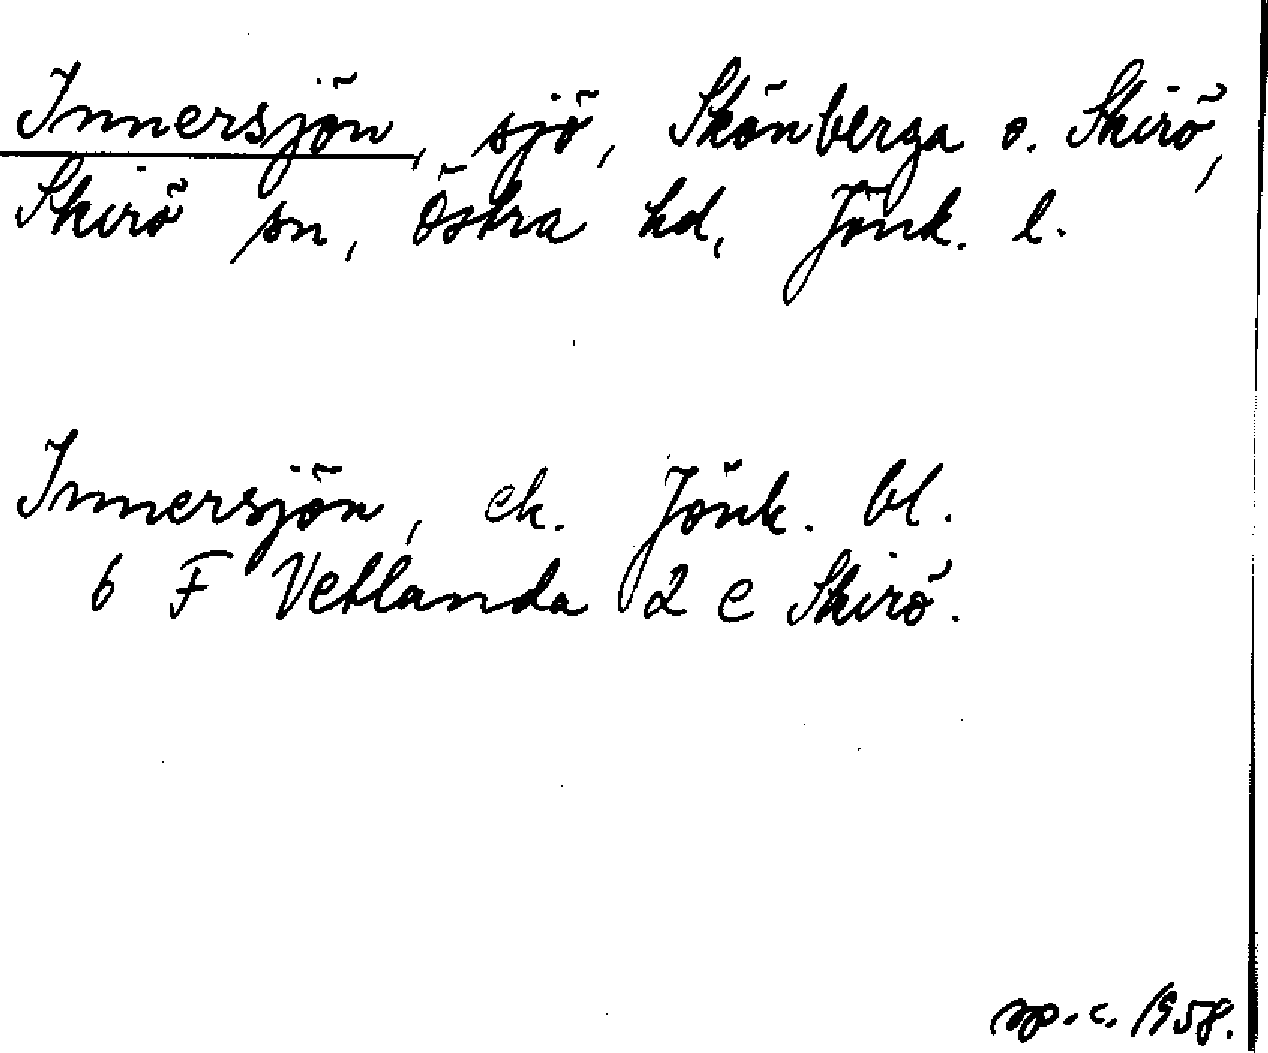 Innersjön, sjö, Skönberga o. Skirö,
Skirö sn, Östra hd, Jönk. l.
Innersjön, ek. Jönk. bl.
6 F Vetlanda 2 e Skirö.
sp.c. 1958.